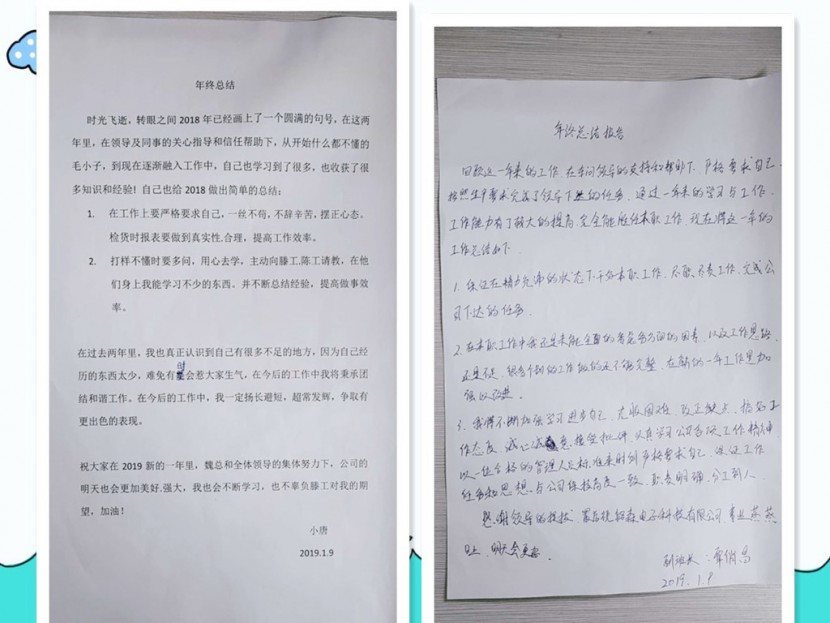 年终总结
时光飞逝，转眼之间2018年已经画上了一个圆满的句号，在这两
年里，在领导及同事的关心指导和信任帮助下，从开始什么都不懂的
毛小子，到现在逐渐融入工作中，自己也学习到了很多，也收获了很
多知识和经验！自己也给2018做出简单的总结：
1. 在工作上要严格要求自己，一丝不苟，不辞辛苦，摆正心态。
检货时报表要做到真实性,合理，提高工作效率。
2. 打样不懂时要多问，用心去学，主动向滕工,陈工请教，在他
们身上我能学习不少的东西。并不断总结经验，提高做事效
率。
在过去两年里，我也真正认识到自己有很多不足的地方，因为自己经
历的东西太少，难免有时会惹大家生气，在今后的工作中我将秉承团
结和谐工作。在今后的工作中，我一定扬长避短，超常发辉，争取有
更出色的表现。
祝大家在2019新的一年里，魏总和全体领导的集体努力下，公司的
明天也会更加美好.强大，我也会不断学习，也不辜负滕工对我的期
望，加油！
小唐
2019.1.9
年终总结报告
回顾这一年来的工作，在车间领导的支持和帮助下，严格要求自己，
按照生产要求完善了领导下的任务，通过一年来的学习与工作，
工作能力有了较大的提高，完全能胜任本职工作，现在将这一年的
工作总结如下
1. 保证在精力充沛的状态下干好本职工作，尽职、尽责工作，完成公
司下达的任务。
2. 在本职工作中我还是未能全面的考虑多方面的因素，以致工作思路
还是, 很多个别的工作做的还不够完整，在新的一年工作里加
强以改进。
3. 我将不断加强学习进步自己，克服困难，改正缺点，端正工
作态度，诚心诚意接受批评，认真学习公司各项工作精神
以一位合格的管理人员标准来时刻严格要求自己，保证工作
任务和思想与公司保持高度一致，负责明确，分工到人
感谢领导的提拔，最后祝电子科技有限公司，事业蒸蒸
日上，明天会更好
副班长：
2019.1.9